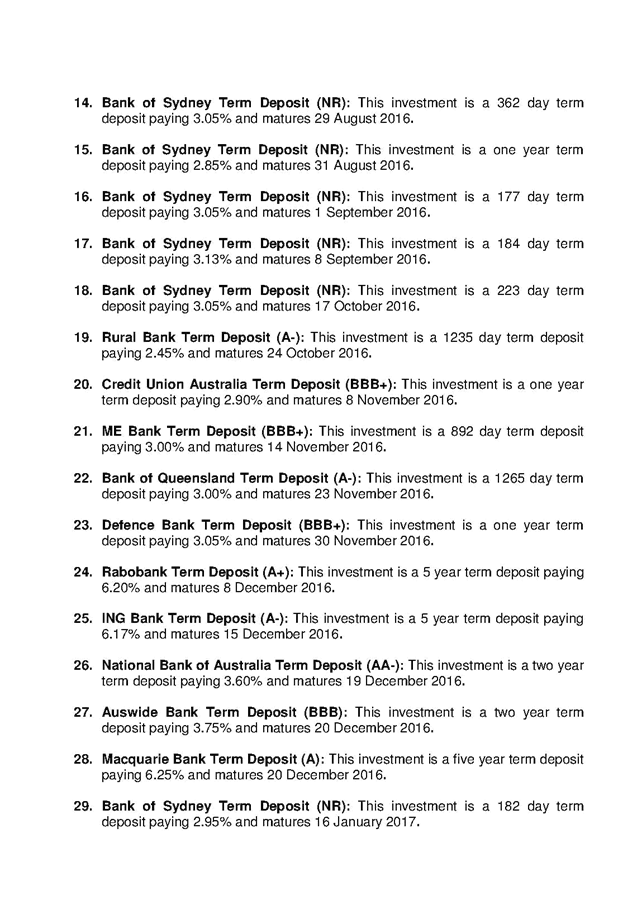 14. Bank of Sydney Term Deposit (NR): This investment is a 362 day term
deposit paying 3.05% and matures 29 August 2016.
15. Bank of Sydney Term Deposit (NR): This investment is a one year term
deposit paying 2.85% and matures 31 August 2016.
16. Bank of Sydney Term Deposit (NR): This investment is a 177 day term
deposit paying 3.05% and matures 1 September 2016.
17. Bank of Sydney Term Deposit (NR): This investment is a 184 day term
deposit paying 3.13% and matures 8 September 2016.
18. Bank of Sydney Term Deposit (NR): This investment is a 223 day term
deposit paying 3.05% and matures 17 October 2016.
19. Rural Bank Term Deposit (A-): This investment is a 1235 day term deposit
paying 2.45% and matures 24 October 2016.
20. Credit Union Australia Term Deposit (BBB+): This investment is a one year
term deposit paying 2.90% and matures 8 November 2016.
21. ME Bank Term Deposit (BBB+): This investment is a 892 day term deposit
paying 3.00% and matures 14 November 2016.
22. Bank of Queensland Term Deposit (A-): This investment is a 1265 day term
deposit paying 3.00% and matures 23 November 2016.
23. Defence Bank Term Deposit (BBB+): This investment is a one year term
deposit paying 3.05% and matures 30 November 2016.
24. Rabobank Term Deposit (A+): This investment is a 5 year term deposit paying
6.20% and matures 8 December 2016.
25. ING Bank Term Deposit (A-): This investment is a 5 year term deposit paying
6.17% and matures 15 December 2016.
26. National Bank of Australia Term Deposit (AA-): This investment is a two year
term deposit paying 3.60% and matures 19 December 2016.
27. Auswide Bank Term Deposit (BBB): This investment is a two year term
deposit paying 3.75% and matures 20 December 2016.
28. Macquarie Bank Term Deposit (A): This investment is a five year term deposit
paying 6.25% and matures 20 December 2016.
29. Bank of Sydney Term Deposit (NR): This investment is a 182 day term
deposit paying 2.95% and matures 16 January 2017.